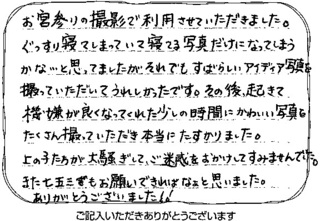 お宮参りの撮影で利用させていただきました。
ぐっすり寝てしまっていて寝てる写真だけになってしまう
かな…と思ってましたがそれでもすばらしいアイディア写真を
撮っていただいてうれしかったです。その後、起きて
機嫌が良くなってくれた少しの時間にかわいい写真を
たくさん撮っていただき本当にたすかりました。
上の子たちが大騒ぎして、ご迷惑をおかけしてすみませんでした。
また七五三でもお願いできればなぁと思いました。
ありがとうございました!!
ご記入いただきありがとうございます